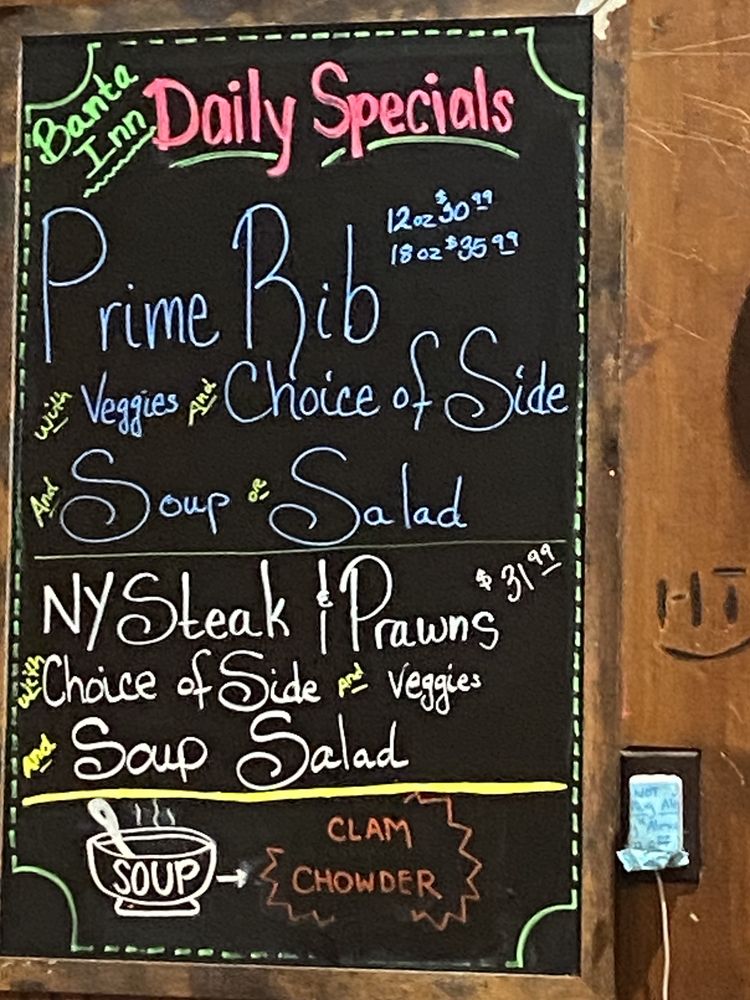 Banta Inn Daily Specials
Prime Rib 12oz $30.99
18oz $35.99
with Veggies And Choice of Side
And Soup or Salad
NY Steak & Prawns $31.99
with Choice of Side And Veggies
And Soup Salad
SOUP → CLAM
CHOWDER
HI
NOT